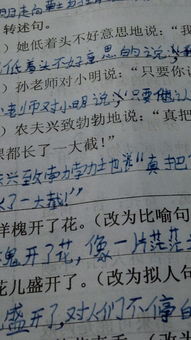 转述句。
）她低着头不好意思地说：“我
低着头不好意思的说，我
）孙老师对小明说：“只要你认
老师对小明说，只要他认
）农夫兴致勃勃地说：“真把
果都长了一大截！”
兴致勃勃地说“真把
了一大截！”
洋槐开了花。（改为比喻句
槐开了花，像一片茫茫
花儿盛开了。（改为拟人句
盛开了，对人们不停的